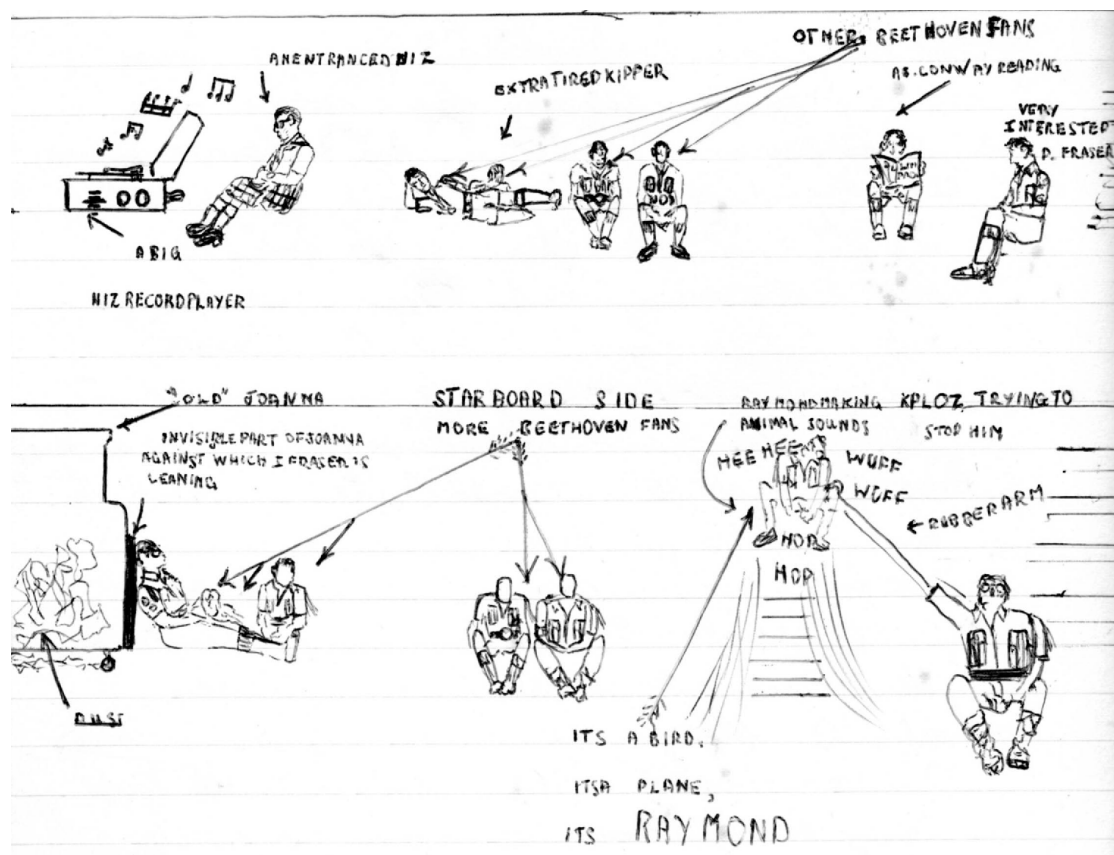 OTHER BEETHOVEN FANS
AN ENTRANCED HIZ
EXTRA TIRED KIPPER
AS. CONWAY READING
VERY
INTERESTED
D. FRASER
A BIG
HIZ RECORD PLAYER
"OLD" JOANNA
INVISIBLE PART OF JOANNA
AGAINST WHICH I FRASER IS
LEANING
STARBOARD SIDE
MORE BEETHOVEN FANS
RAYMOND MAKING
ANIMAL SOUNDS
KPLOZ TRYING TO
STOP HIM
HEE HEE
WUFF
WUFF
RUBBER ARM
HOP
HOP
DUST
ITS A BIRD,
ITSA PLANE,
ITS RAYMOND